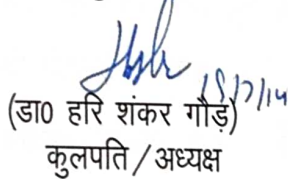 15/7/14
(डा० हरि शंकर गौड़)
कुलपति / अध्यक्ष